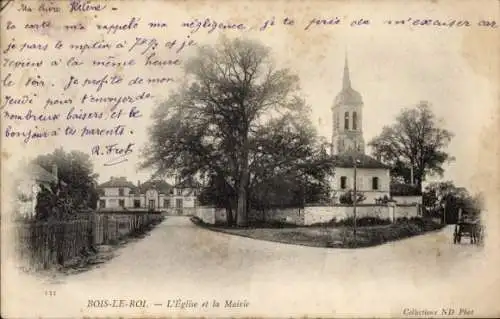 Ma chère Hélène
ta carte m'a rappelé ma négligence je te prie de m'excuser car
je pars le matin à 7h½ et j'ai
le soir. Je profite de mon
Jeudi pour t'envoyer de
nombreux baisers et le
bonjour à tes parents.
131
BOIS-LE-ROI. — L'Église et la Mairie
Collections ND Phot